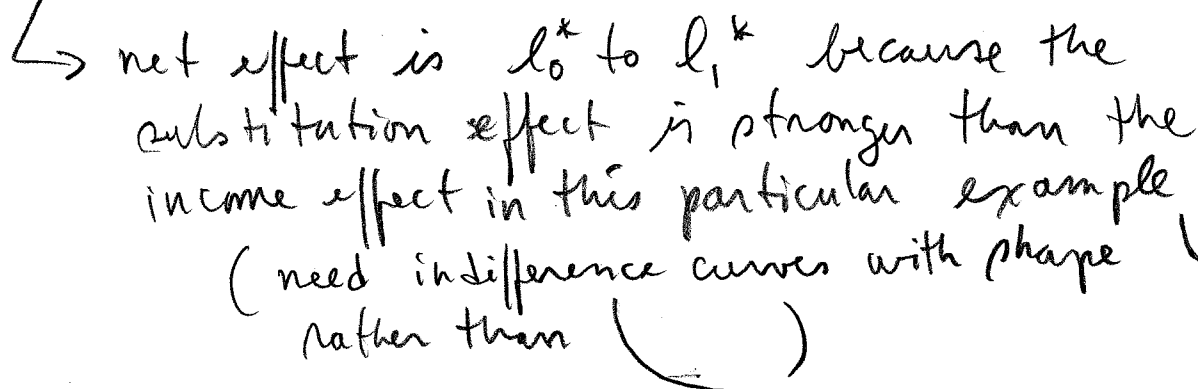 ↳ net effect is l₀* to l₁* because the
substitution effect is stronger than the
income effect in this particular example
(need indifference curves with shape \
rather than \_ )